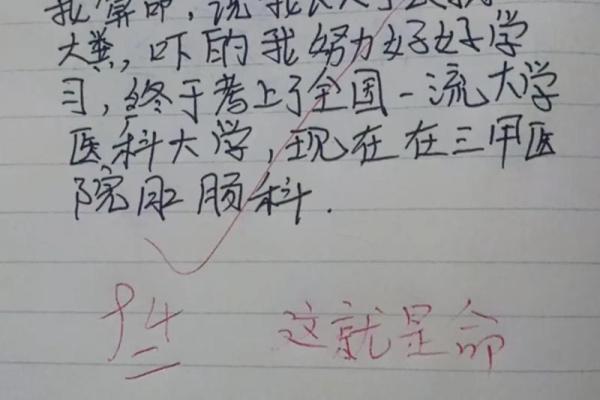 我算命，说我长大了
大粪，吓的我努力好好学
习，终于考上了全国一流大学
医科大学，现在在三甲医
院肛肠科.
94
这就是命